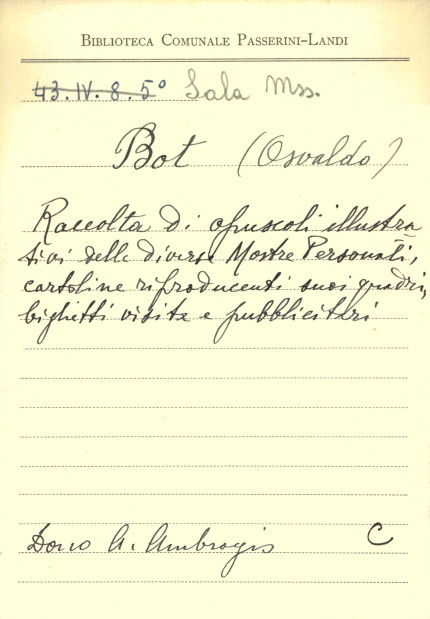 BIBLIOTECA COMUNALE PASSERINI-LANDI
43.IV.8.5° Sala Mss.
Bot (Osvaldo)
Raccolta di opuscoli illustra-
tivi delle diverse Mostre Personali,
cartoline riproducenti suoi quadri,
biglietti visita e pubblicitari
Dono A. Ambrogio C